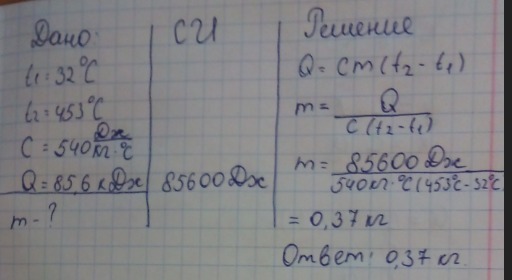 Дано:
t₁ = 32°C
t₂ = 453°C
C = 540 Дж/кг·°C
Q = 85,6 кДж
m - ?
СИ
85600 Дж
Решение
Q = Cm(t₂ - t₁)
m = Q / C(t₂ - t₁)
m = 85600 Дж / 540 кг·°C (453°C - 32°C
= 0,37 кг
Ответ: 0,37 кг.